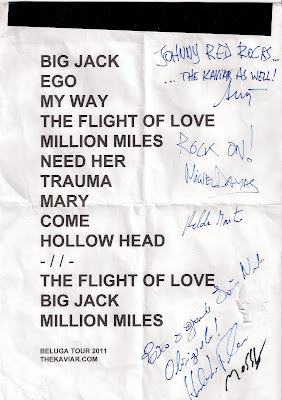 BIG JACK
EGO
MY WAY
THE FLIGHT OF LOVE
MILLION MILES
NEED HER
TRAUMA
MARY
COME
HOLLOW HEAD
-//-
THE FLIGHT OF LOVE
BIG JACK
MILLION MILES
BELUGA TOUR 2011
THEKAVIAR.COM
JOHNNY RED ROCKS...
...THE KAVIAR AS WELL!
ROCK ON!